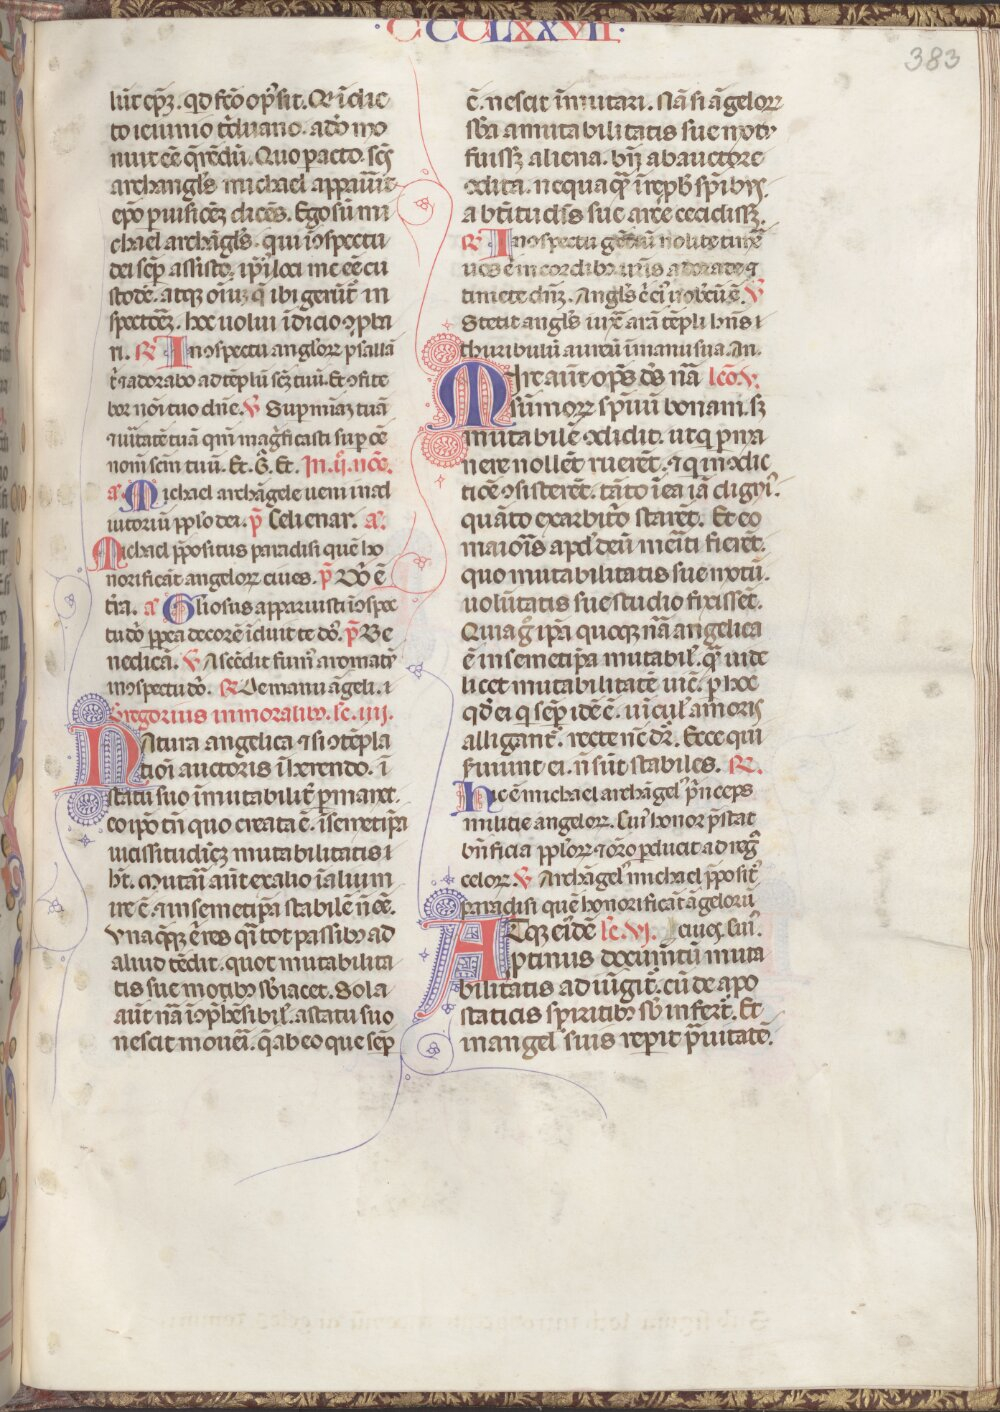 ·CCCLXXVII·
383
luit ep̄z. qd fc̄o op̄ sit. Qr īdic
to ieiunio t̄duano. a do mo
nuit eē q̄rēdū. Quo pacto. sc̄s
archangl̄s michael apparuit
ep̄o puificēz dicēs. Ego sū mi
chael archāgl̄s. qui ī ꝯspectu
dei sēp assisto. ip̄i loci me eē cu
stodē. atqz oīuz q̄ ibi gerūt̄ in
spectōrēz. hoc uolui īdicio ꝯpba
ri. R̄ In ꝯspectu anglorꝝ psallā
t̄ ⁊ adorabo ad tēplū sc̄z tuū. Et ꝯfite
bor nōi tuo dn̄e. V̄ Sup mīaz tuā
⁊ uītatē tuā qm̄ mag̅ficasti sup oē
nom̄ scm̄ tuū. Et. G̅. Et. In. ij. noc̄e.
a̅. Michael archāgele ueni in ad
iutoriū pplo dei. p̅ Celi enar. a̅.
Michael p̅positus paradisi quē ho
norificāt angelorꝝ ciues. p̅ Dn̄i ē
t̄ra. a̅ Gl̄iosus apparuisti ī ꝯspec
tu dn̄i ppea decorē īduit te dn̄s. p̅ Be
nedicā. V̄ Ascēdit fum̄ aromatū
in ꝯspectu dn̄i. R̄ De manu āgeli. ı
Gregorius in moralibꝫ. lc̄. iiij.
Natura angelica ⁊ si ꝯtēpla
tioi auctoris īherendo. ī
statu suo īmutabilit̄ pmanet.
eo ip̄o tn̄ quo creata ē. ī semetip̄a
uicissitudīez mutabilitatis ı
ht. Mutari aut̄ ex alio ī alium
ire ē. ⁊ in semetip̄a stabilē n̄ eē.
Vna q̄qz ē res q̄si tot passibꝫ ad
aliud tēdit. quot mutabilita
tis sue motibꝫ sb̄iacet. Sola
aut̄ nā ī ꝯp̄hēsibil̄. a statu suo
nescit mouēi. q̄ ab eo que sēp
ē. nescit īmutari. Nā si āgelorꝝ
sb̄a a mutabilitatis sue motu
fuissꝫ aliena. bn̄ ab auctore
ꝯdita. nequaq̄ ī repb̄ sp̄ibꝫ.
a btitudīs sue arce cecidissꝫ.
R̄ In ꝯspectu gētiū nolite timē
uos ē in cordibꝫ uris adorate ⁊
timete dn̄z. Angl̄s ē ei̅ uobcū ē. V̄
Stetit angl̄s iux̄ arā tēpli hn̄s ı
thuribulū aureū ī manu sua. An.
Mire aut̄ op̄s ds̄ nā lcō. V.
sūmorꝝ spirituū bonam. sꝫ
mutabilē ꝯdidit. ut q pma
nere nollēt ruerēt. ⁊ q in ꝯdic
tiōe ꝯsisterēt. tāto ī ea iā dign̄i.
quāto ex arbit̄o starēt. Et eo
maioris apd̄ deū mēiti fierēt.
quo mutabilitatis sue motū.
uolūtatis sue studio fixissēt.
Quia ḡ ip̄a quoqz nā angelica
ē in semetip̄a mutabil̄. q̄ uide
licet mutabilitatē uic̄. p hoc
qd̄ ei q sēp idē ē. uīculis amoris
alligant̄. recte nc̄ dr̄. Ecce qui
seruiunt ei. n̄ sūt stabiles. R̄.
Hic ē michael archāgel̄ p̅nceps
militie angelorꝝ. Cui̅ honor p̅stat
bn̄ficia pplorꝝ ⁊ orō pducit ad reg̅
celorꝝ. V̄ Archāgel̄ michael p̅posit̄
paradisi quē honorificāt āgelorū
Atqz ei̅dē lc̄. VI. ciues. Cui̅.
Aptinus docum̄tū muta
bilitatis adiūgit̄. cū de apo
staticis spiritibꝫ sb̄ infert̄. Et
in angel̄ suis reperit p̅uitatē.